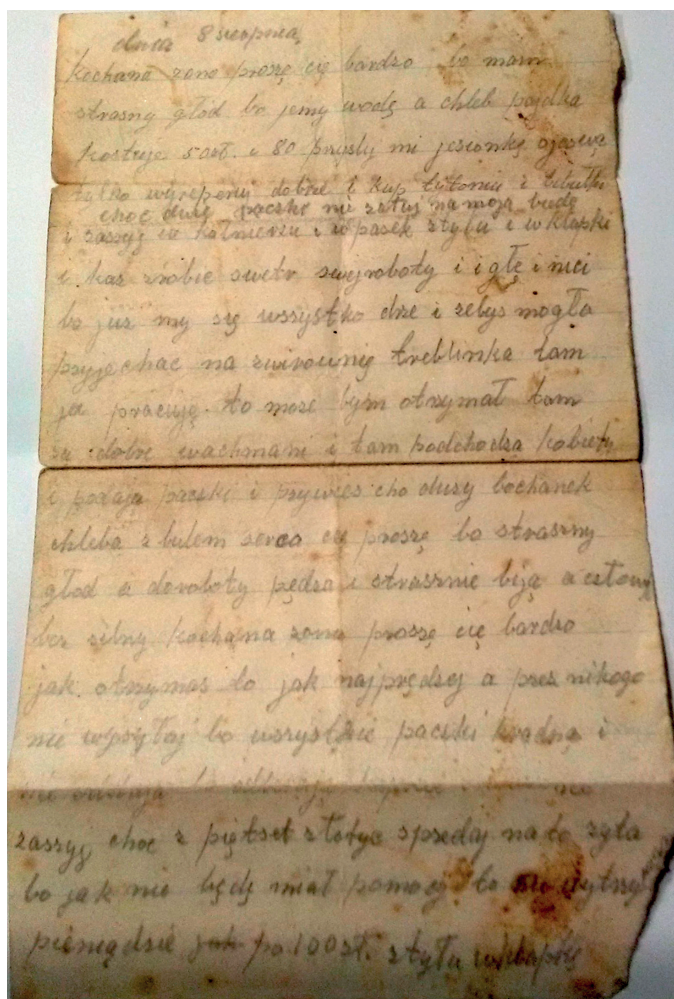 dnia 8 sierpnia
kochana zono proszę cię bardzo bo mam
strasny głód bo jemy wodę a chleb pajdka
kostuje 50zł. i 80 przysly mi jesionkę
tylko wyreperuj dobrze i kup tytoniu i bibułki
choc dwie paczki nie załuj na moją biede
i zaszyj w kołnierzu i w pasek ztyłu i w klapki
i kaz zrobic swetr i igłę i nici
bo juz my się wszystko drze i zebys mogła
przyjechac na zwirownię treblinka tam
ja pracuję to moze bym otrzymał tam
są dobre wachmani i tam podchodza kobiety
i podaja paczki i przywies cho duzy bochanek
chleba z bulem serca cię proszę bo straszny
głod a doroboty pędza i strasznie biją a człowi
bez silny kochana zono proszę cię bardzo
jak otrzymas to jak najprędzej a przez nikogo
nie wysyłaj bo wszystkie paczki kradną i
nie
zaszyj choc z piętset złotyc sprzedaj na to zyta
bo jak nie będę miał pomocy to nie wytrzy
pieniądzie jak po 100zł. ztyłu w klapkę